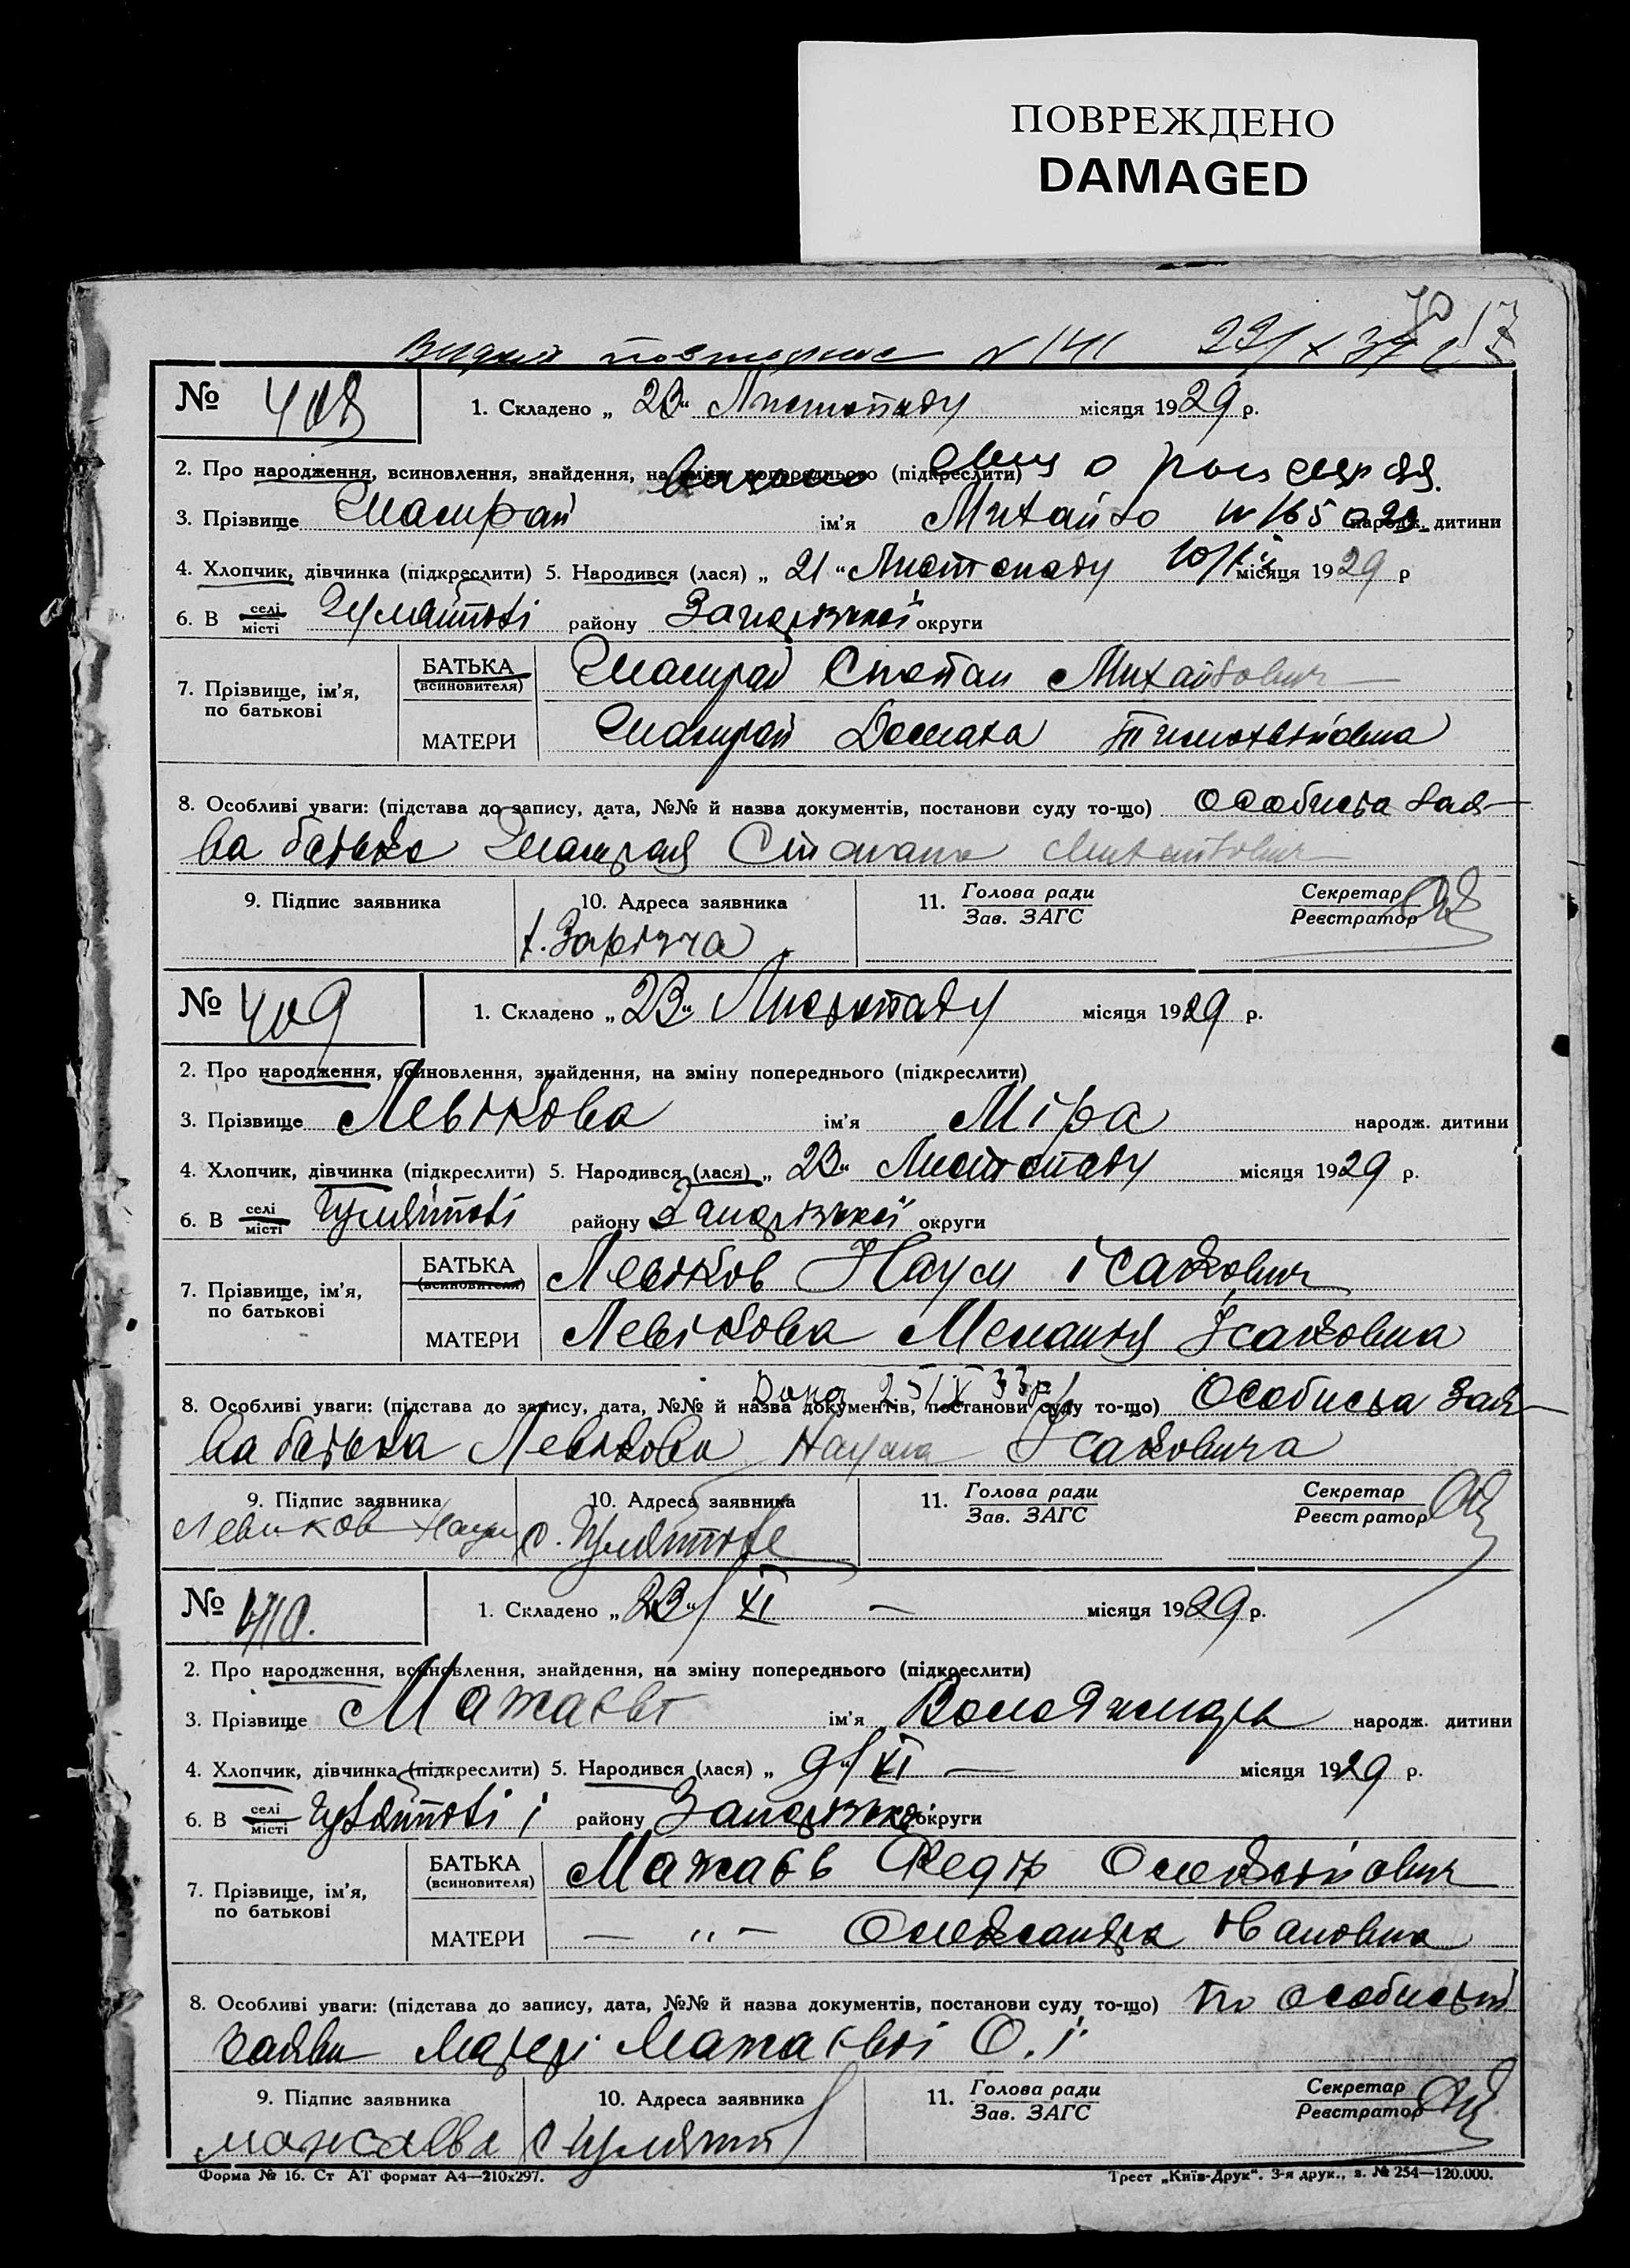 ПОВРЕЖДЕНО
DAMAGED
повторне N 141
№ 408 1. Складено „23“ Листопаду місяця 1929 р.
2. Про народження, всиновлення, знайдення, на зміну попереднього (підкреслити)
3. Прізвище ім'я Михайло N 165 народж. дитини
4. Хлопчик, дівчинка (підкреслити) 5. Народився (лася) „21“ Листопаду місяця 1929 р
6. В селі / місті району Запорізької округи
7. Прізвище, ім'я, по батькові
БАТЬКА (всиновителя) Степан Михайлович
МАТЕРИ Домаха Тимохвіївна
8. Особливі уваги: (підстава до запису, дата, №№ й назва документів, постанови суду то-що) Особиста зая-
ва батька Степана Михайлович
9. Підпис заявника 10. Адреса заявника 11. Голова ради / Зав. ЗАГС Секретар / Реєстратор
№ 409 1. Складено „23“ Листопаду місяця 1929 р.
2. Про народження, всиновлення, знайдення, на зміну попереднього (підкреслити)
3. Прізвище Левікова ім'я Міра народж. дитини
4. Хлопчик, дівчинка (підкреслити) 5. Народився (лася) „23“ Листопаду місяця 1929 р.
6. В селі / місті району Запорізької округи
7. Прізвище, ім'я, по батькові
БАТЬКА (всиновителя) Левіков Наум Ісакович
МАТЕРИ Левікова Меланія Ісаковна
8. Особливі уваги: (підстава до запису, дата, №№ й назва документів, постанови суду то-що) Особиста зая-
ва батька Левікова Наума Ісаковича
9. Підпис заявника 10. Адреса заявника 11. Голова ради / Зав. ЗАГС Секретар / Реєстратор
Левиков Наум
№ 410. 1. Складено „23“/XI — місяця 1929 р.
2. Про народження, всиновлення, знайдення, на зміну попереднього (підкреслити)
3. Прізвище Мажаєв ім'я Володимирь народж. дитини
4. Хлопчик, дівчинка (підкреслити) 5. Народився (лася) „9“/XI — місяця 1929 р.
6. В селі / місті району Запорізької округи
7. Прізвище, ім'я, по батькові
БАТЬКА (всиновителя) Мажаєв Федір Олексійович
МАТЕРИ — „ — Олександра Івановна
8. Особливі уваги: (підстава до запису, дата, №№ й назва документів, постанови суду то-що) По особистій
заяви Матері Мажаєвої О. І.
9. Підпис заявника 10. Адреса заявника 11. Голова ради / Зав. ЗАГС Секретар / Реєстратор
Мажаєва
Форма № 16. Ст АТ формат А4—210х297. Трест „Київ-Друк“. 3-я друк., з. № 254—120.000.